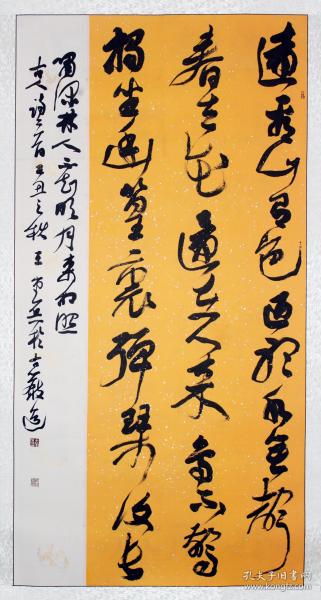 遠看山有色西聽水無聲
春去花還在人來鳥不驚
獨坐幽篁裏彈琴復長
嘯深林人不知明月來相照
古人詩二首丁丑之秋王
孔夫子旧书网
www.kongfz.com